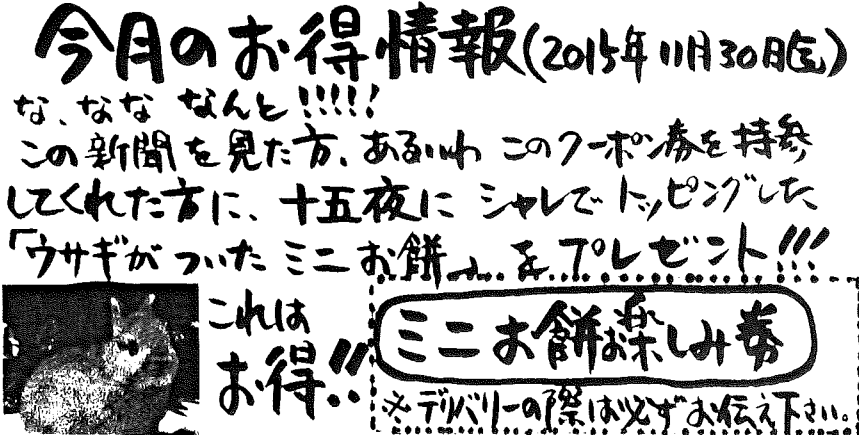 今月のお得情報(2015年11月30日迄)
な、なな なんと!!!!!
この新聞を見た方、あるいわ このクーポン券を持参
してくれた方に、十五夜に シャレで トッピングした
「ウサギが ついた ミニ お餅」を プレゼント!!!
これは
お得!!
ミニお餅お楽しみ券
※デリバリーの際は必ずお伝え下さい。